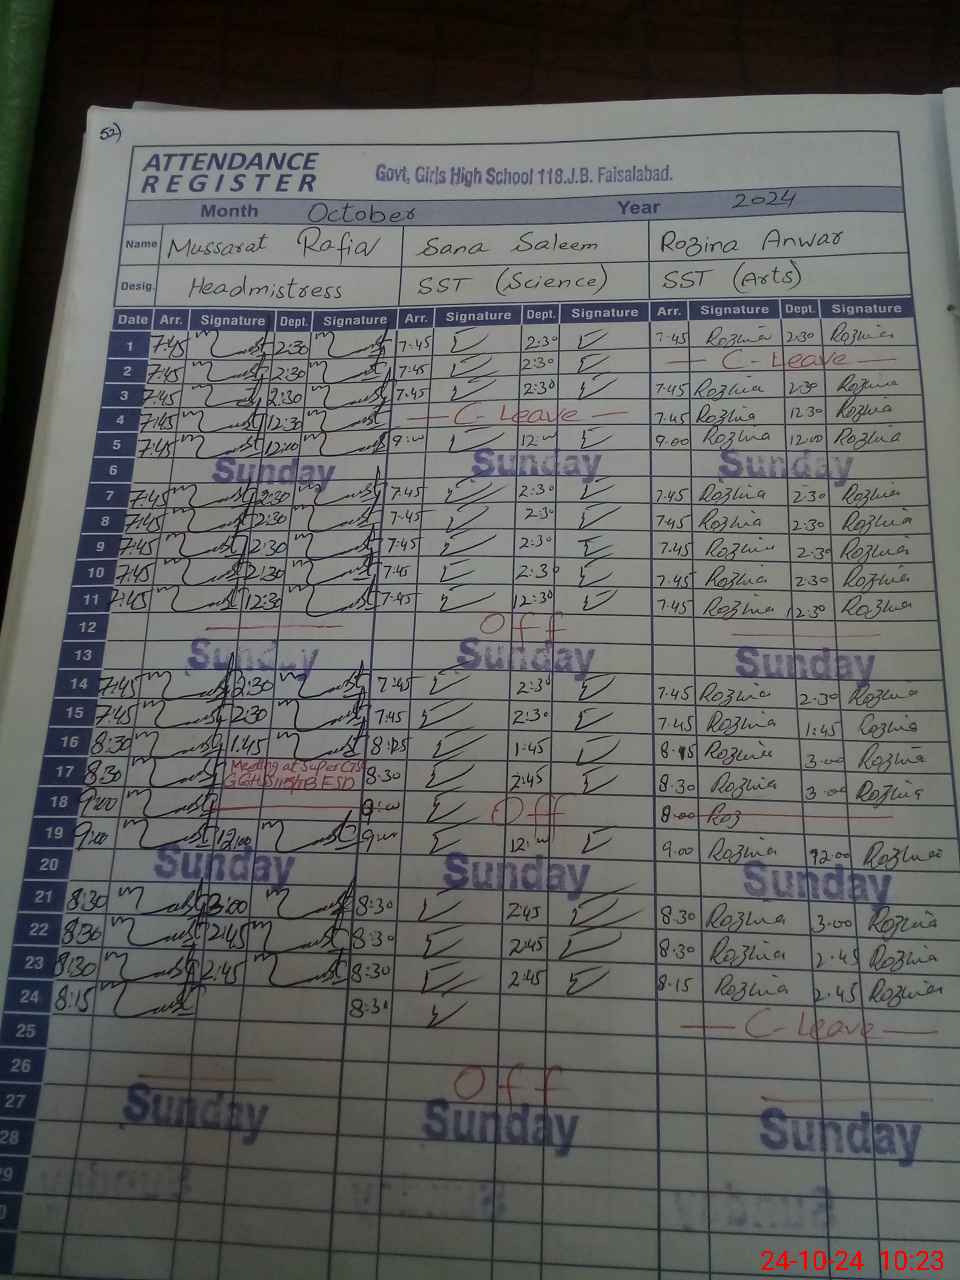 52)
ATTENDANCE REGISTER Govt, Girls High School 118.J.B. Faisalabad.
Month October Year 2024
Name Mussarat Rafia Sana Saleem Rozina Anwar
Desig. Headmistress SST (Science) SST (Arts)
Date Arr. Signature Dept. Signature Arr. Signature Dept. Signature Arr. Signature Dept. Signature
1 7:45 2:30 7:45 2:30 7:45 Rozina 2:30 Rozina
2 7:45 2:30 7:45 2:30 — C- Leave —
3 7:45 2:30 7:45 2:30 7:45 Rozina 2:30 Rozina
4 7:45 12:30 — C- Leave — 7:45 Rozina 12:30 Rozina
5 7:45 12:00 9:00 12:00 9:00 Rozina 12:00 Rozina
6 Sunday Sunday Sunday
7 7:45 2:30 7:45 2:30 7:45 Rozina 2:30 Rozina
8 7:45 2:30 7:45 2:30 7:45 Rozina 2:30 Rozina
9 7:45 2:30 7:45 2:30 7:45 Rozina 2:30 Rozina
10 7:45 2:30 7:45 2:30 7:45 Rozina 2:30 Rozina
11 7:45 12:30 7:45 12:30 7:45 Rozina 12:30 Rozina
12 Off
13 Sunday Sunday Sunday
14 7:45 2:30 7:45 2:30 7:45 Rozina 2:30 Rozina
15 7:45 2:30 7:45 2:30 7:45 Rozina 1:45 Rozina
16 8:30 1:45 8:15 1:45 8:15 Rozina 3:00 Rozina
17 8:30 Meeting at 8:30 2:45 8:30 Rozina 3:00 Rozina
18 9:00 9:00 Off 8:00 Roz
19 9:00 12:00 9:00 12:00 9:00 Rozina 12:00 Rozina
20 Sunday Sunday Sunday
21 8:30 3:00 8:30 2:45 8:30 Rozina 3:00 Rozina
22 8:30 2:45 8:30 2:45 8:30 Rozina 2:45 Rozina
23 8:30 2:45 8:30 2:45 8:15 Rozina 2:45 Rozina
24 8:15 8:30 — C- Leave —
25
26 Off
27 Sunday Sunday Sunday
28
24-10-24 10:23